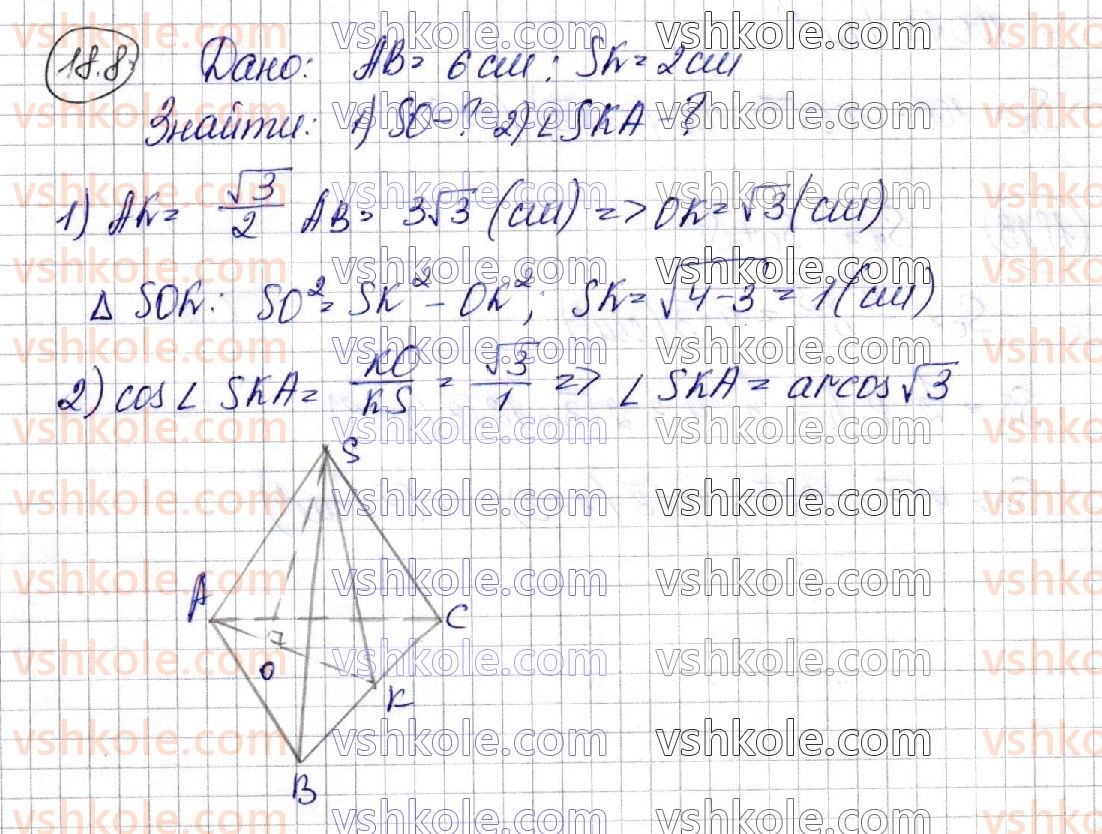 18.8 Дано: AB = 6 см; SK = 2 см
Знайти: 1) SO - ? 2) ∠SKA - ?
1) AK = √3/2 AB = 3√3 (см) => OK = √3 (см)
Δ SOK: SO² = SK² - OK²; SK = √4-3 = 1 (см)
2) cos∠ SKA = KO/KS = √3/1 => ∠ SKA = arcos√3
S
A
C
O
K
B
vshkole.com